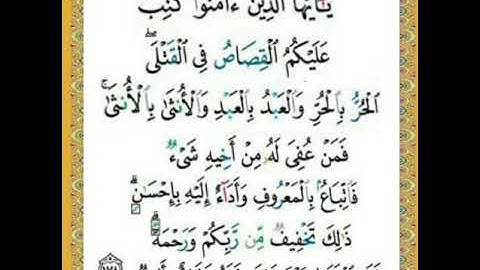 يَٰٓأَيُّهَا ٱلَّذِينَ ءَامَنُوا۟ كُتِبَ
عَلَيْكُمُ ٱلْقِصَاصُ فِى ٱلْقَتْلَى ۖ
ٱلْحُرُّ بِٱلْحُرِّ وَٱلْعَبْدُ بِٱلْعَبْدِ وَٱلْأُنثَىٰ بِٱلْأُنثَىٰ ۚ
فَمَنْ عُفِىَ لَهُۥ مِنْ أَخِيهِ شَىْءٌ
فَٱتِّبَاعٌۢ بِٱلْمَعْرُوفِ وَأَدَآءٌ إِلَيْهِ بِإِحْسَٰنٍ ۗ
ذَٰلِكَ تَخْفِيفٌ مِّن رَّبِّكُمْ وَرَحْمَةٌ ۗ
١٧٨